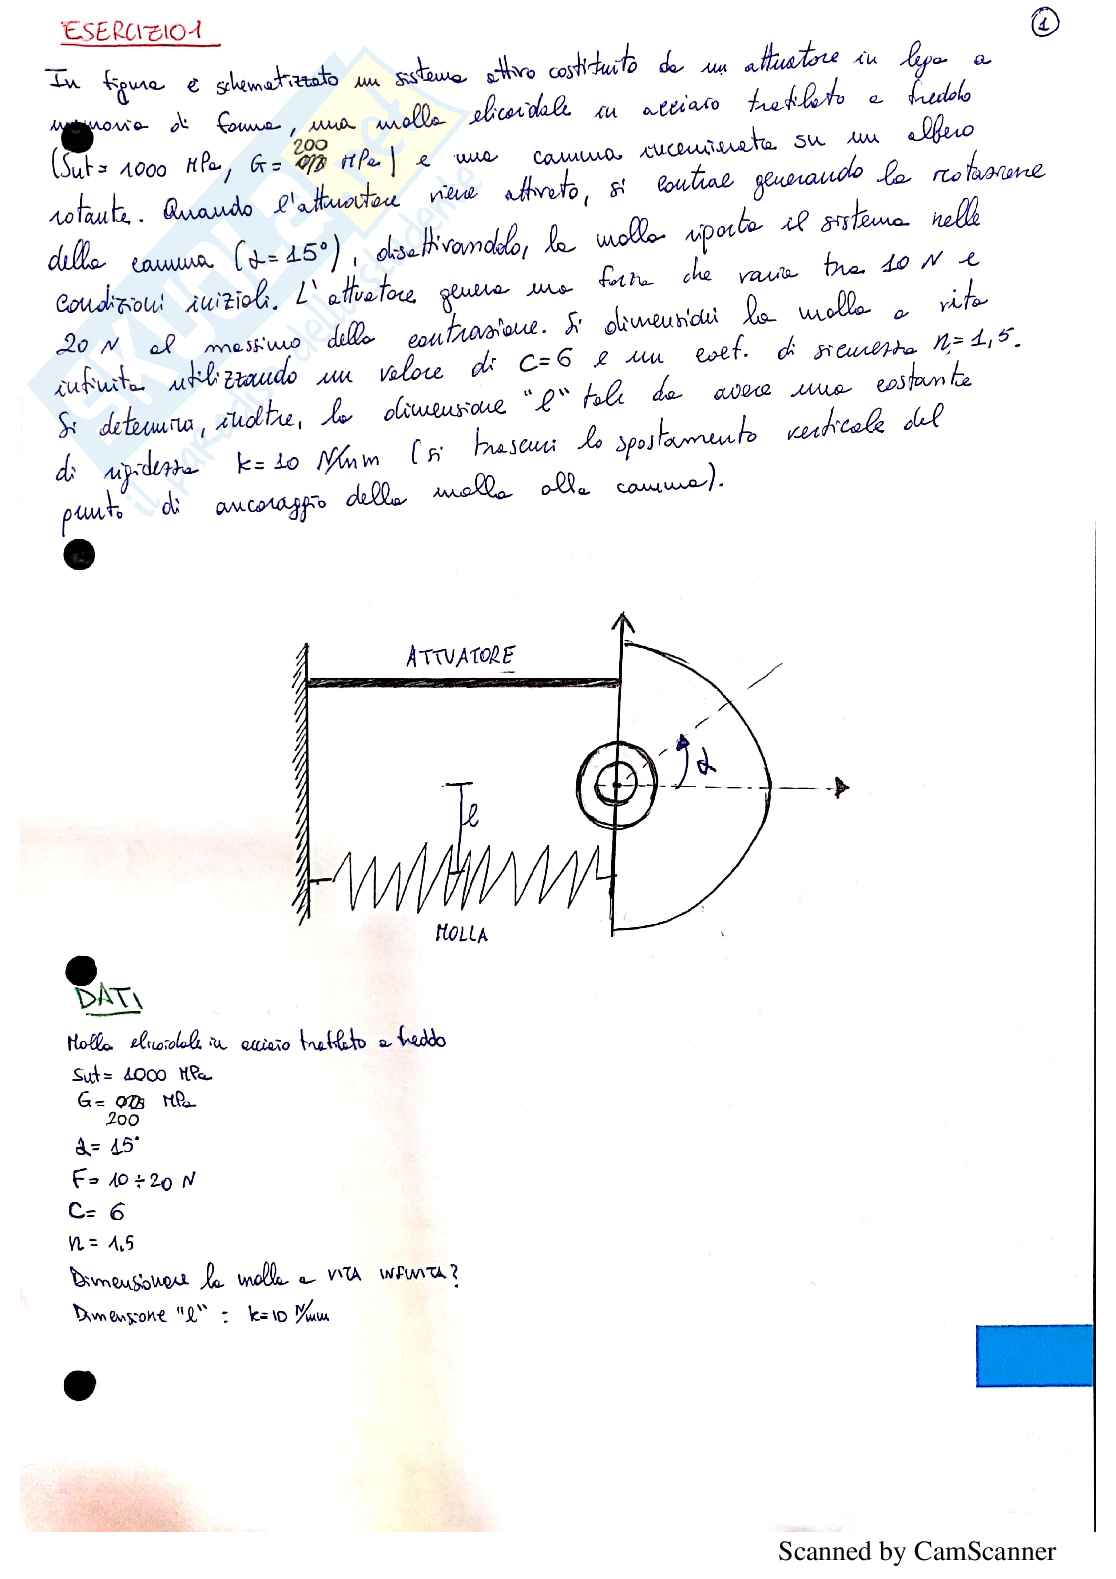 ESERCIZIO 1
1
In figura è schematizzato un sistema attivo costituito da un attuatore in lega a
memoria di forma, una molla elicoidale in acciaio trafilato a freddo
(Sut = 1000 MPa, G = 200 MPa) e una camma incernierata su un albero
rotante. Quando l'attuatore viene attivato, si contrae generando la rotazione
della camma (α = 15°), disattivandolo, la molla riporta il sistema nelle
condizioni iniziali. L'attuatore genera una forza che varia tra 10 N e
20 N al massimo della contrazione. Si dimensioni la molla a vita
infinita utilizzando un valore di C=6 e un coef. di sicurezza n=1,5.
Si determina, inoltre, la dimensione "l" tale da avere una costante
di rigidezza k=10 N/mm (si trascuri lo spostamento verticale del
punto di ancoraggio della molla alla camma).
ATTUATORE
α
l
MOLLA
DATI
Molla elicoidale in acciaio trafilato a freddo
Sut = 1000 MPa
G = MPa
200
α = 15°
F = 10 ÷ 20 N
C = 6
n = 1,5
Dimensionare la molla a VITA INFINITA?
Dimensione "l" : k=10 N/mm
Scanned by CamScanner